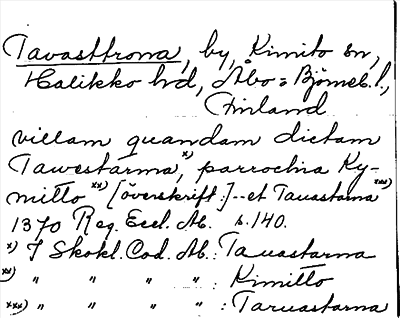 Tavasttrona, by, Kimito sn,
Halikko hd, Åbo = Björneb. l.,
Finland
villam quandam dictam
Tawestarma, x) parrochia Ky-
mitto xx) [överskrift:] - et Tauastarna xxx)
1370 Reg. Eccl. Ab. s. 140.
x) I Skokl. Cod. Ab.: Tauastarna
xx) " " " " : Kimitto
xxx) " " " " : Taruastarna